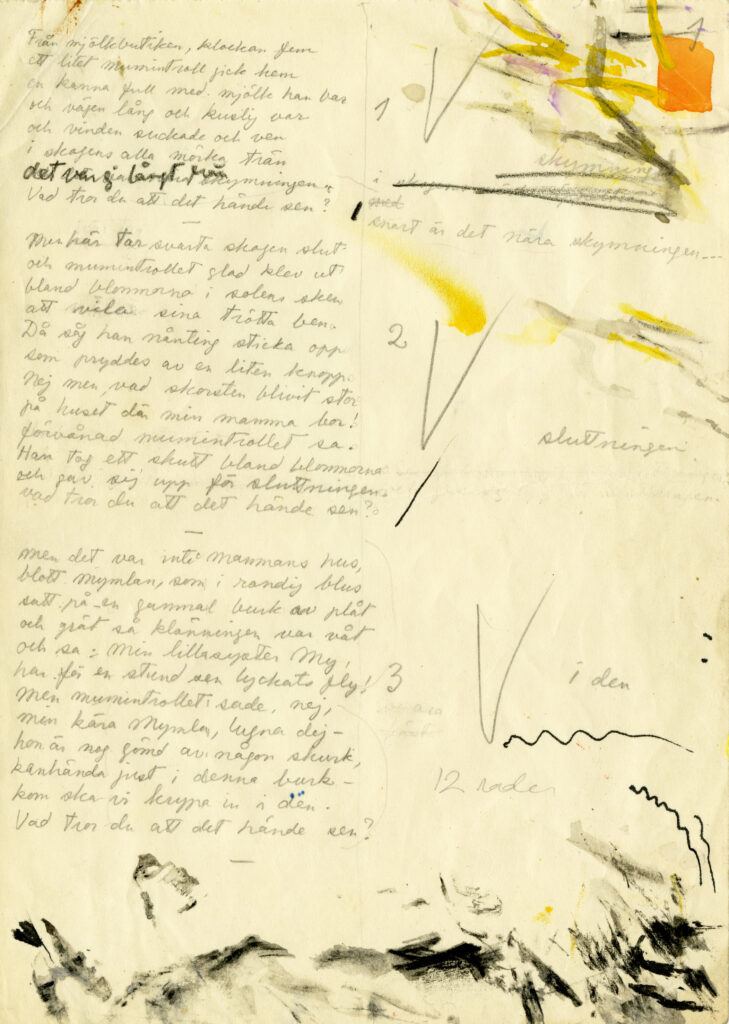 1
Från mjölkbutiken, klockan fem
ett litet mumintroll gick hem
en kanna full med mjölk han bar
och vägen lång och kuslig var
och vinden suckade och ven
i skogens alla mörka trän
det var ej långt från skymningen..
Vad tror du att det hände sen?
1
skymningen
i
med
snart är det nära skymningen...
Men här tar svarta skogen slut
och mumintrollet glad klev ut
bland blommorna i solens sken
att vila sina trötta ben.
Då såg han nånting sticka opp
som pryddes av en liten knopp.
Nej men, vad skorsten blivit stor
på huset där min mamma bor!
förvånad mumintrollet sa.
Han tog ett skutt bland blommorna
och gav sig upp för sluttningen.
vad tror du att det hände sen?
2
sluttningen.
Men det var inte mammans hus,
blott Mymlan, som i randig blus
satt på en gammal burk av plåt
och grät så klänningen var våt
och sa: Min lillasyster My,
har för en stund sen lyckats fly!
Men mumintrollet sade, nej,
men kära Mymla, lugna dej –
hon är nog gömd av någon skurk,
kanhända just i denna burk –
kom ska vi krypa in i den.
Vad tror du att det hände sen?
3
i den
12 rader